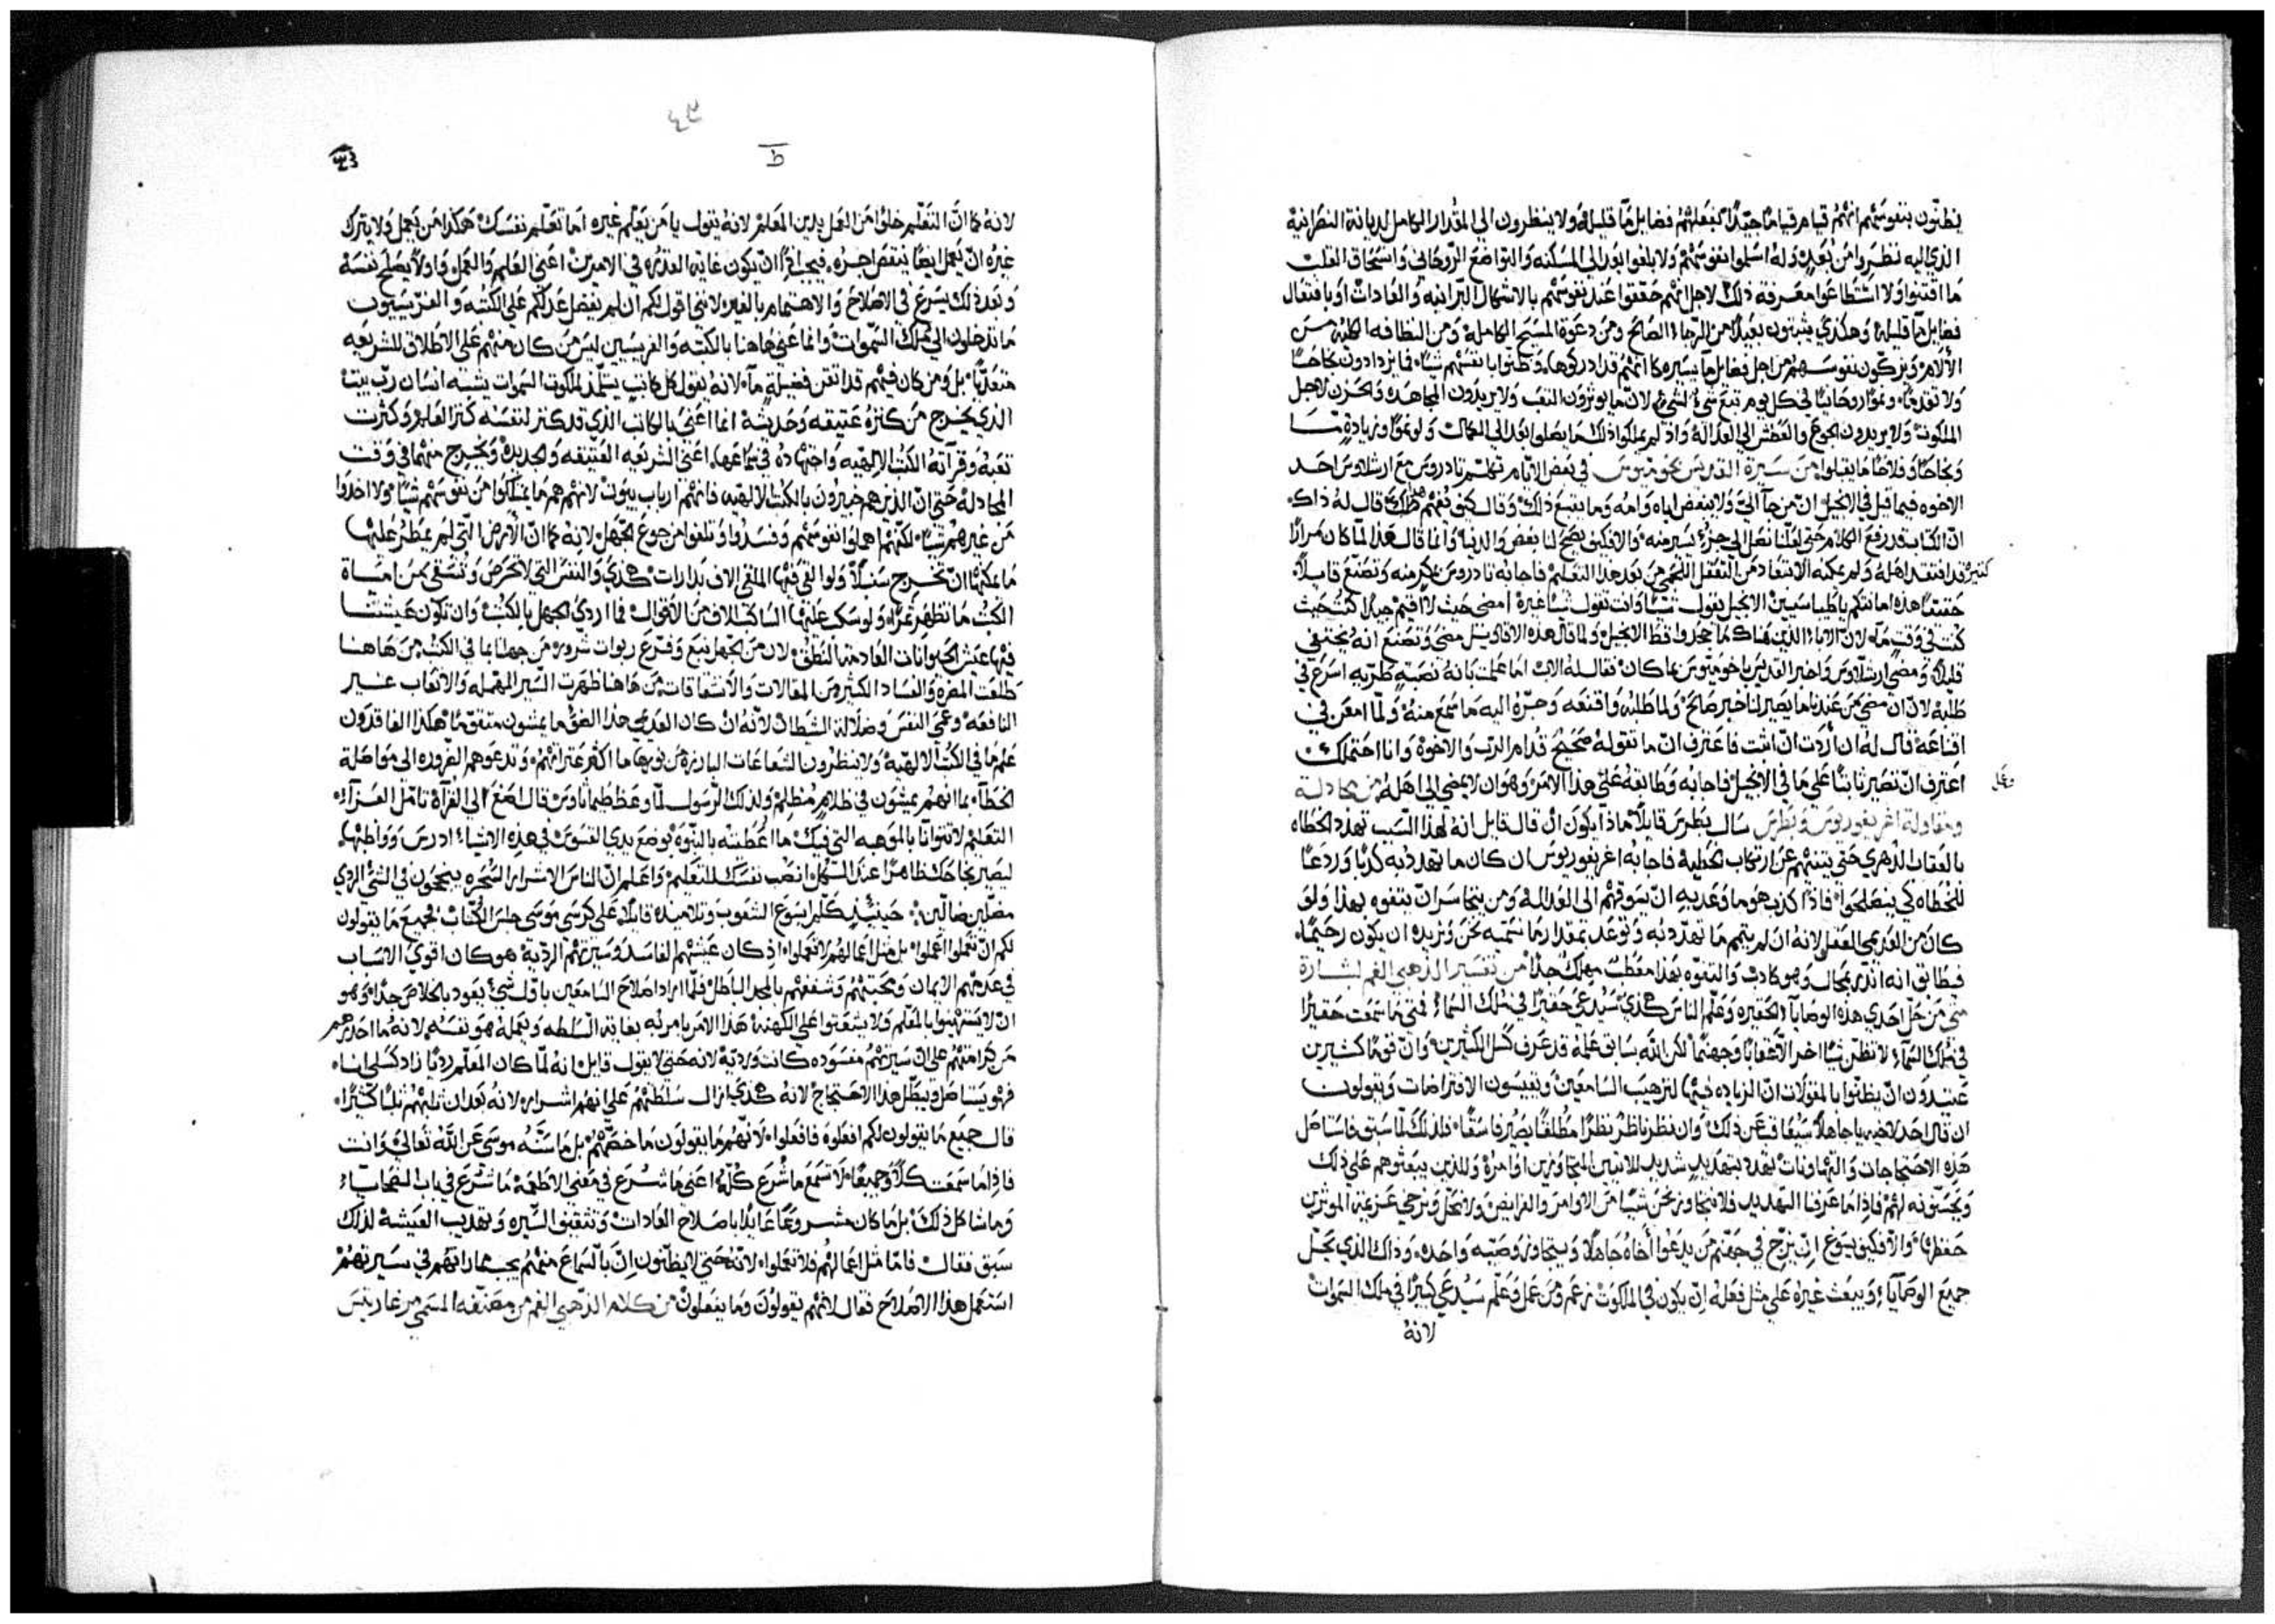 يظنّون بنفوسهم انهم قيام قيامًا جيّدًا كفعلهم فضايل مّا قليلة ولا ينظرون الي المقدار الكامل لديانة النصرانية
الذي اليه نظروا من بُعدٍ وله اسلوا نفوسهم ولا بلغوا بعد الي المسكنه والتواضع الروحاني وانسحاق القلب
ما اقتنوا ولا استطاعوا معرفة ذلك لاجل انهم حققوا عند نفوسهم بالاشكال البرانيه والعادات او بافتعال
فضايل مّا قليلة وهكذي يثبتون بعيدًا من الرجاء الصالح ومن دعوة المسيح الكاملة ومن النظافه الكليه من
الألام ويزكون نفوسهم من اجل فضايل مّا يسيره كانهم قد ادركوها وظنوا بانفسهم شيًا فما يزدادون نجاحًا
ولا تقدمًا ونموًا روحانيًا في كل يوم تبع شيٍ لشيٍ لان ما يوثرون التعب ولا يريدون المجاهده والحزن لاجل
الملكوت ولا يريدون الجوع والعطش الي العداله واذ لم يملكوا ذلك ما يصلوا بعد الي الكمال ولو نموًا وزيادةٍ مّا
ونجاحًا وفلاحًا ما يقبلوا من سيرة القديس بخوميوس في بعض الايام تكلم تادروس مع ارشلاوس احد
الاخوه فيما قيل في الانجيل ان من جا اليّ ولا يبغض اباه وامه وما يتبع ذلك وقال كيف نفهم هذا قال له ذاك
ان الكتاب قد رفع الكلام حتي لعلّنا نصل الي جزءٍ يسير منه والا فكيف يصح لنا بغض والدينا وانما قال هذا لما كان مرارًا
كثير قد افتقد اهله ولم يمكنه الابتعاد من التعقل اللحمي من بعد هذا التعليم فاجابه تادروس بمكر منه وتصنّع قايلًا
حقًا هذه امانتكم يا طبياسيين الانجيل يقول شيًا وانت تقول شيًا غيره امضي حيث لا اقيم جيدًا كنت حيث
كنت في وقتٍ مّا لان الاباء الذين هناك ما جحدوا قط الانجيل ولما قال هذه الاقاويل مضي وتصنع انه يختفي
قليلًا ومضي ارشلاوس واخبر القديس باخوميوس بما كان فقال له الاب اما علمت بانه نصبةٍ طريه اسرع في
طلبه لان ان مضي من عندنا ما يصير لنا خير صالح ولما طلبه واقنعه وجرّه اليه ما سمع منه ولما امعن في
اقناعه قال له ان اردت ان اثبت فاعترف ان ما تقوله صحيح قدام الرب والاخوة وانا احتملك
اعترف ان تصير ثابتًا علي ما في الانجيل فاجابه وطابقه علي هذا الامر وهو ان لا يمضي الي اهله من مجادلة
وعل
ومقاولة اغريغوريوس وبطرس سال بطرس قايلًا ماذا يكون ان قال قايل انه لهذا السبب تهدد الخطاه
بالعقاب الدهري حتي يتنههم عن ارتكاب الخطيه فاجابه اغريغوريوس ان كان ما تهدد به كذبًا وردعًا
للخطاه كي ينصلحوا فاذًا كذب هو ما وعد به ان يسوقهم الي العداله ومن يتجاسر ان يتفوه بهذا ولو
كان من العدمي العقل لانه ان لم يتمم ما تهدد به وتوعد بمقدار ما نسميه نحن ونريده ان يكون رحيمًا
فيطابق انه انذر بمحال وهو كاذب والتفوه بهذا معطب مهلك جدًا من تفسير الذهبي الفم لبشارة
متي من حلّ احدي هذه الوصايا الحقيره وعلّم الناس هكذي سيُدعي حقيرًا في ملك السماء فمتي ما سمعت حقيرًا
في ملك السماء لا تظن شيًا اخر الّا عقابًا وجهنم لكن الله بسابق علمه قد عرف كسل الكثيرين وان قومًا كثيرين
عتيدون ان يظنّوا بالمقولات ان الزياده فيها لترهيب السامعين ويقيسون الافتراضات ويقولون
ان قال احد لاخيه يا جاهلًا سيُعاقب عن ذلك وان نظر ناظر نظرًا مطلقًا يصير فاسقًا فلذلك لما سبق فاستاصل
هذه الاحتجاجات والتهاونات تهدد بتهديد شديد للاثنين المتجاوزين اوامره وللذين يبعثوهم علي ذلك
ويحسّنونه لهم فاذا ما عرفنا التهديد فلا نتجاوز نحن شيًا من الاوامر والفرايض ولا نحل ونرخي عزيمة الموثرين
حفظها والا فكيف يسوغ ان يزج في جهنم من يدعوا اخاه جاهلًا ويتجاوز وصيةً واحده وذاك الذي يحل
جميع الوصايا ويبعث غيره علي مثل فعله ان يكون في الملكوت نزعم ومن عمل وعلّم سيُدعي كبيرًا في ملك السموات
لانهُ
ط
لانه كما ان التعليم خلوًا من العمل يدين المعلم لانه يقول يا من يعلّم غيره اما تعلّم نفسك هكذا من يعمل ولا يترك
غيره ان يعمل ايضًا ينقص اجره فيجب اذًا ان يكون غاية الفذره في الامرين اعني العلم والعمل واولًا يصلح نفسه
وبعد ذلك يسرع في الاصلاح والاهتمام بالغير لانني اقول لكم ان لم يفضل عدلكم علي الكتبه والفريسيون
ما تدخلون الي ملك السموات وانما عني هاهنا بالكتبه والفريسيين ليس من كان منهم علي الاطلاق للشريعه
متعديًا بل ومن كان فيهم قد اتقن فضيلةٍ مآ لانه يقول كل كاتبٍ يتلمذ لملكوت السموات يشبه انسان رب بيت
الذي يخرج من كنزه عتيقه وحديثه انما اعني بالكاتب الذي قد كنز لنفسه كنز العلم وكثرت
تعبه وقرآته الكتب الالهيه واجتهاده في سماعها اعني الشريعه العتيقه والجديده ويخرج منهما في وقت
المجادله حتي ان الذين هم خبيرون بالكتب الالهيه فانهم ارباب بيوت لانهم هم ما يمتلكوا من نفوسهم شيًا ولا اخذوا
من غيرهم شيًا لكنهم اهملوا نفوسهم وفسدوا وتلفوا من جوع الجهل لانه كما ان الارض التي لم يمطر عليها
ما يمكنها ان تخرج سنبلًا ولو القي فيها الملقي الاف بدارات هكذي والنفس التي لا تحرص وتسقي من امياة
الكتب ما تظهر ثمرًا ولو سكب عليها الساكب الاف من الاقوال فما اردي الجهل بالكتب وان تكون عيشتنا
فيها عيش الحيوانات العادمة النطق لان من الجهل نبع وفرع ربوات شرور من جهلنا بما في الكتب من هاهنا
طلعت المضرة والفساد الكثير من المقالات والانشقاقات من هاهنا ظهرت السير المهمله والاتعاب غير
النافعه وعمي النفس وضلالة الشيطان لانه ان كان العديمي هذا الضوّ ما يمشون متقومًا هكذا الفاقدون
علم ما في الكتب الالهية ولا ينظرون الشعاعات البارزه من نورها ما اكثر عثراتهم وتدعوهم الضروره الي مواصلة
الخطاء بما انهم يمشون في ظلام مظلم ولذلك الرسول لما وعظ طيماثاوس قال اصغ الي القرآة تامل العزآء
التعليم لا تتوانًا بالموهبه التي فيك مما اُعطيته بالنبوة بوضع يدي القسوس في هذه الاشياء ادرس وواظبها
ليصير نجاحك ظاهرًا عند الكل انصب نفسك للتعليم واعلم ان الناس الاشرار السحره ينجحون في الشي الردي
مضلّين ضالّين حينيذٍ كلّم ايسوع الشعوب وتلاميذه قايلًا علي كرسي موسي جلس الكتّاب فجميع ما يقولون
لكم ان تعملوا اعملوا بل مثل اعمالهم لا تعملوا اذ كان عيشتهم الفاسده وسيرتهم الرديه هو كان اقوي الاسباب
في عدمهم الايمان ومحبتهم وشغفهم بالمجد الباطل فلمّا اراد اصلاح السامعين باوّل شيء يعود بالخلاص جدًا وهو
ان لا يستهينوا بالمعلم ولا يتعنتوا علي الكهنه هذا الامر يامر به بغاية السلطه ويعمله هو نفسه لانه ما احدرهم
من كرامتهم علي ان سيرتهم مفسوده كانت ورديّة لانه حتي لا يقول قايل انه لمّا كان المعلّم رديًا زاد كسلي انا
فهو يستاصل ويبطل هذا الاحتجاج لانه هكذي ازال سلطتهم علي انهم اشرار لانه بعد ان ثلبهم ثلبًا كثيرًا
قال جميع ما يقولون لكم افعلوه فافعلوا لانهم ما يقولون ما خصّهم بل ما سنّه موسي عن الله تعالي وانت
فاذا ما سمعت كلًا وجميعًا لا تسمع ما شُرع كلّه اعني ما شُرع في معني الاطعمة ما شرّع في باب الضحايا
وما شاكل ذلك بل ما كان مشروعًا عايدًا باصلاح العادات وتثقيف السّيره وتهذيب العيشة لذلك
سبق فقال فامّا مثل اعمالهم فلا تعملوا لانه حتي لا يظنّون انّ بالسماع منهم يجب مماراتهم في سيرتهم
استعمل هذا الاصلاح فقال لانهم يقولون وما يفعلون من كلام الذهبي الفم من مصنّفه المسمي مرغاريتس